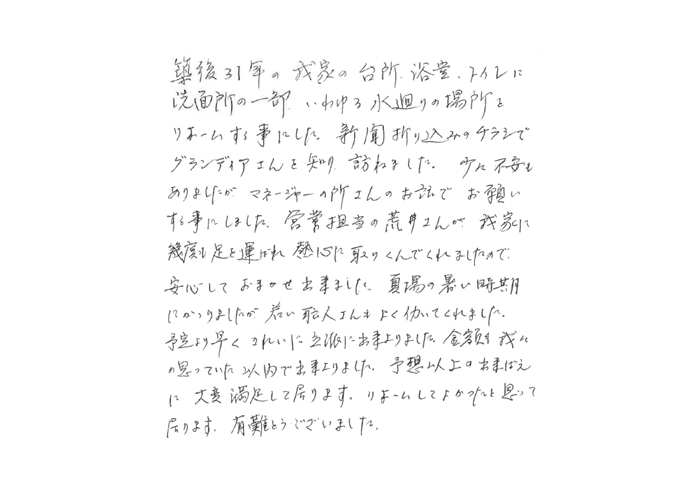 築後31年の我家の台所、浴室、トイレに
洗面所の一部、いわゆる水廻りの場所を
リホームする事にした。新聞折り込みのチラシで
グランディアさんを知り、訪ねました。少々不安も
ありましたが マネージャーの所さんのお話で お願い
する事にしました。営業担当の荒井さんが、我家に
幾度も足を運ばれ 熱心に取りくんでくれましたので、
安心して おまかせ出来ました。夏場の暑い時期
にかかりましたが 若い職人さんもよく働いてくれました。
予定より早く きれいに立派に出来上りました。金額も我々
の思っていた以内で出来上りました。予想以上の出来ばえ
に 大変満足して居ります。リホームしてよかったと思って
居ります。有難とうございました。